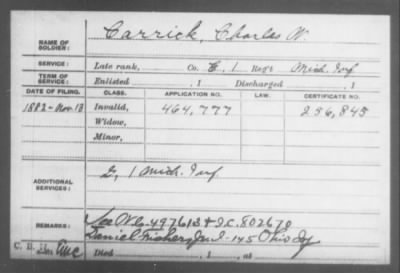 NAME OF SOLDIER: Carrick, Charles W.
SERVICE: Late rank, Co. E, 1 Reg't Mich. Inf
TERM OF SERVICE: Enlisted , 1 Discharged , 1
DATE OF FILING. CLASS. APPLICATION NO. LAW. CERTIFICATE NO.
1882-Nov 13 Invalid, 464,777 256,845
Widow,
Minor,
ADDITIONAL SERVICES: G, 1 Mich. Inf
REMARKS: See 497613 & I.C. 802670
Daniel 145 Ohio Inf
Died , 1 , at